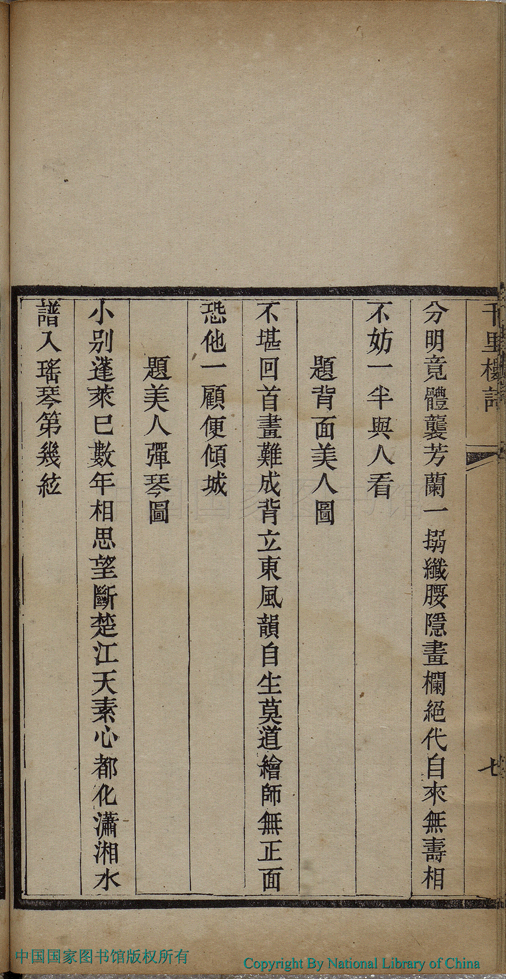 千里樓詩
七
分明竟體襲芳蘭一搦纖腰隱畫欄絕代自來無壽相
不妨一半與人看
題背面美人圖
不堪回首畫難成背立東風韻自生莫道繪師無正面
恐他一顧便傾城
題美人彈琴圖
小別蓬萊已數年相思望斷楚江天素心都化瀟湘水
譜入瑤琴第幾絃
中国国家图书馆版权所有
Copyright By National Library of China